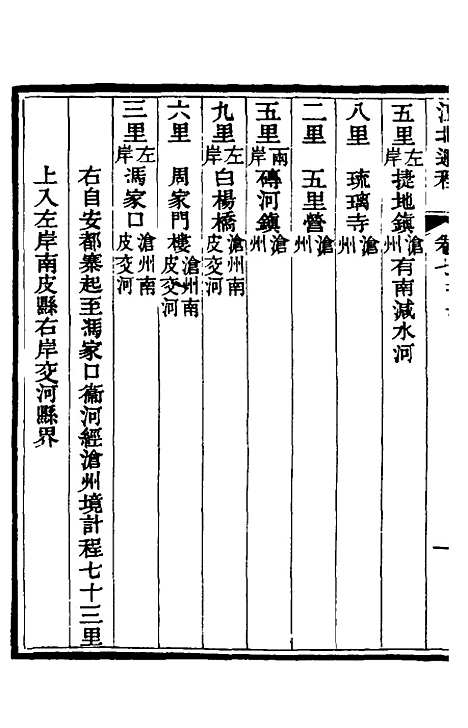 五里左岸捷地鎮滄州有南減水河
八里　琉璃寺滄州
二里　五里營滄州
五里兩岸磚河鎮滄州
九里左岸白楊橋滄州南皮交河
六里　周家門樓滄州南皮交河
三里左岸馮家口滄州南皮交河
右自安都寨起至馮家口衞河經滄州境計程七十三里
上入左岸南皮縣右岸交河縣界